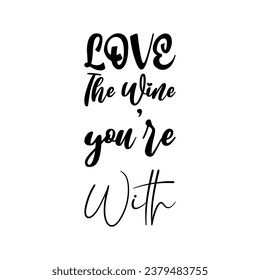 LOVE
The Wine
you're
With
shutterstock.com · 2379483755